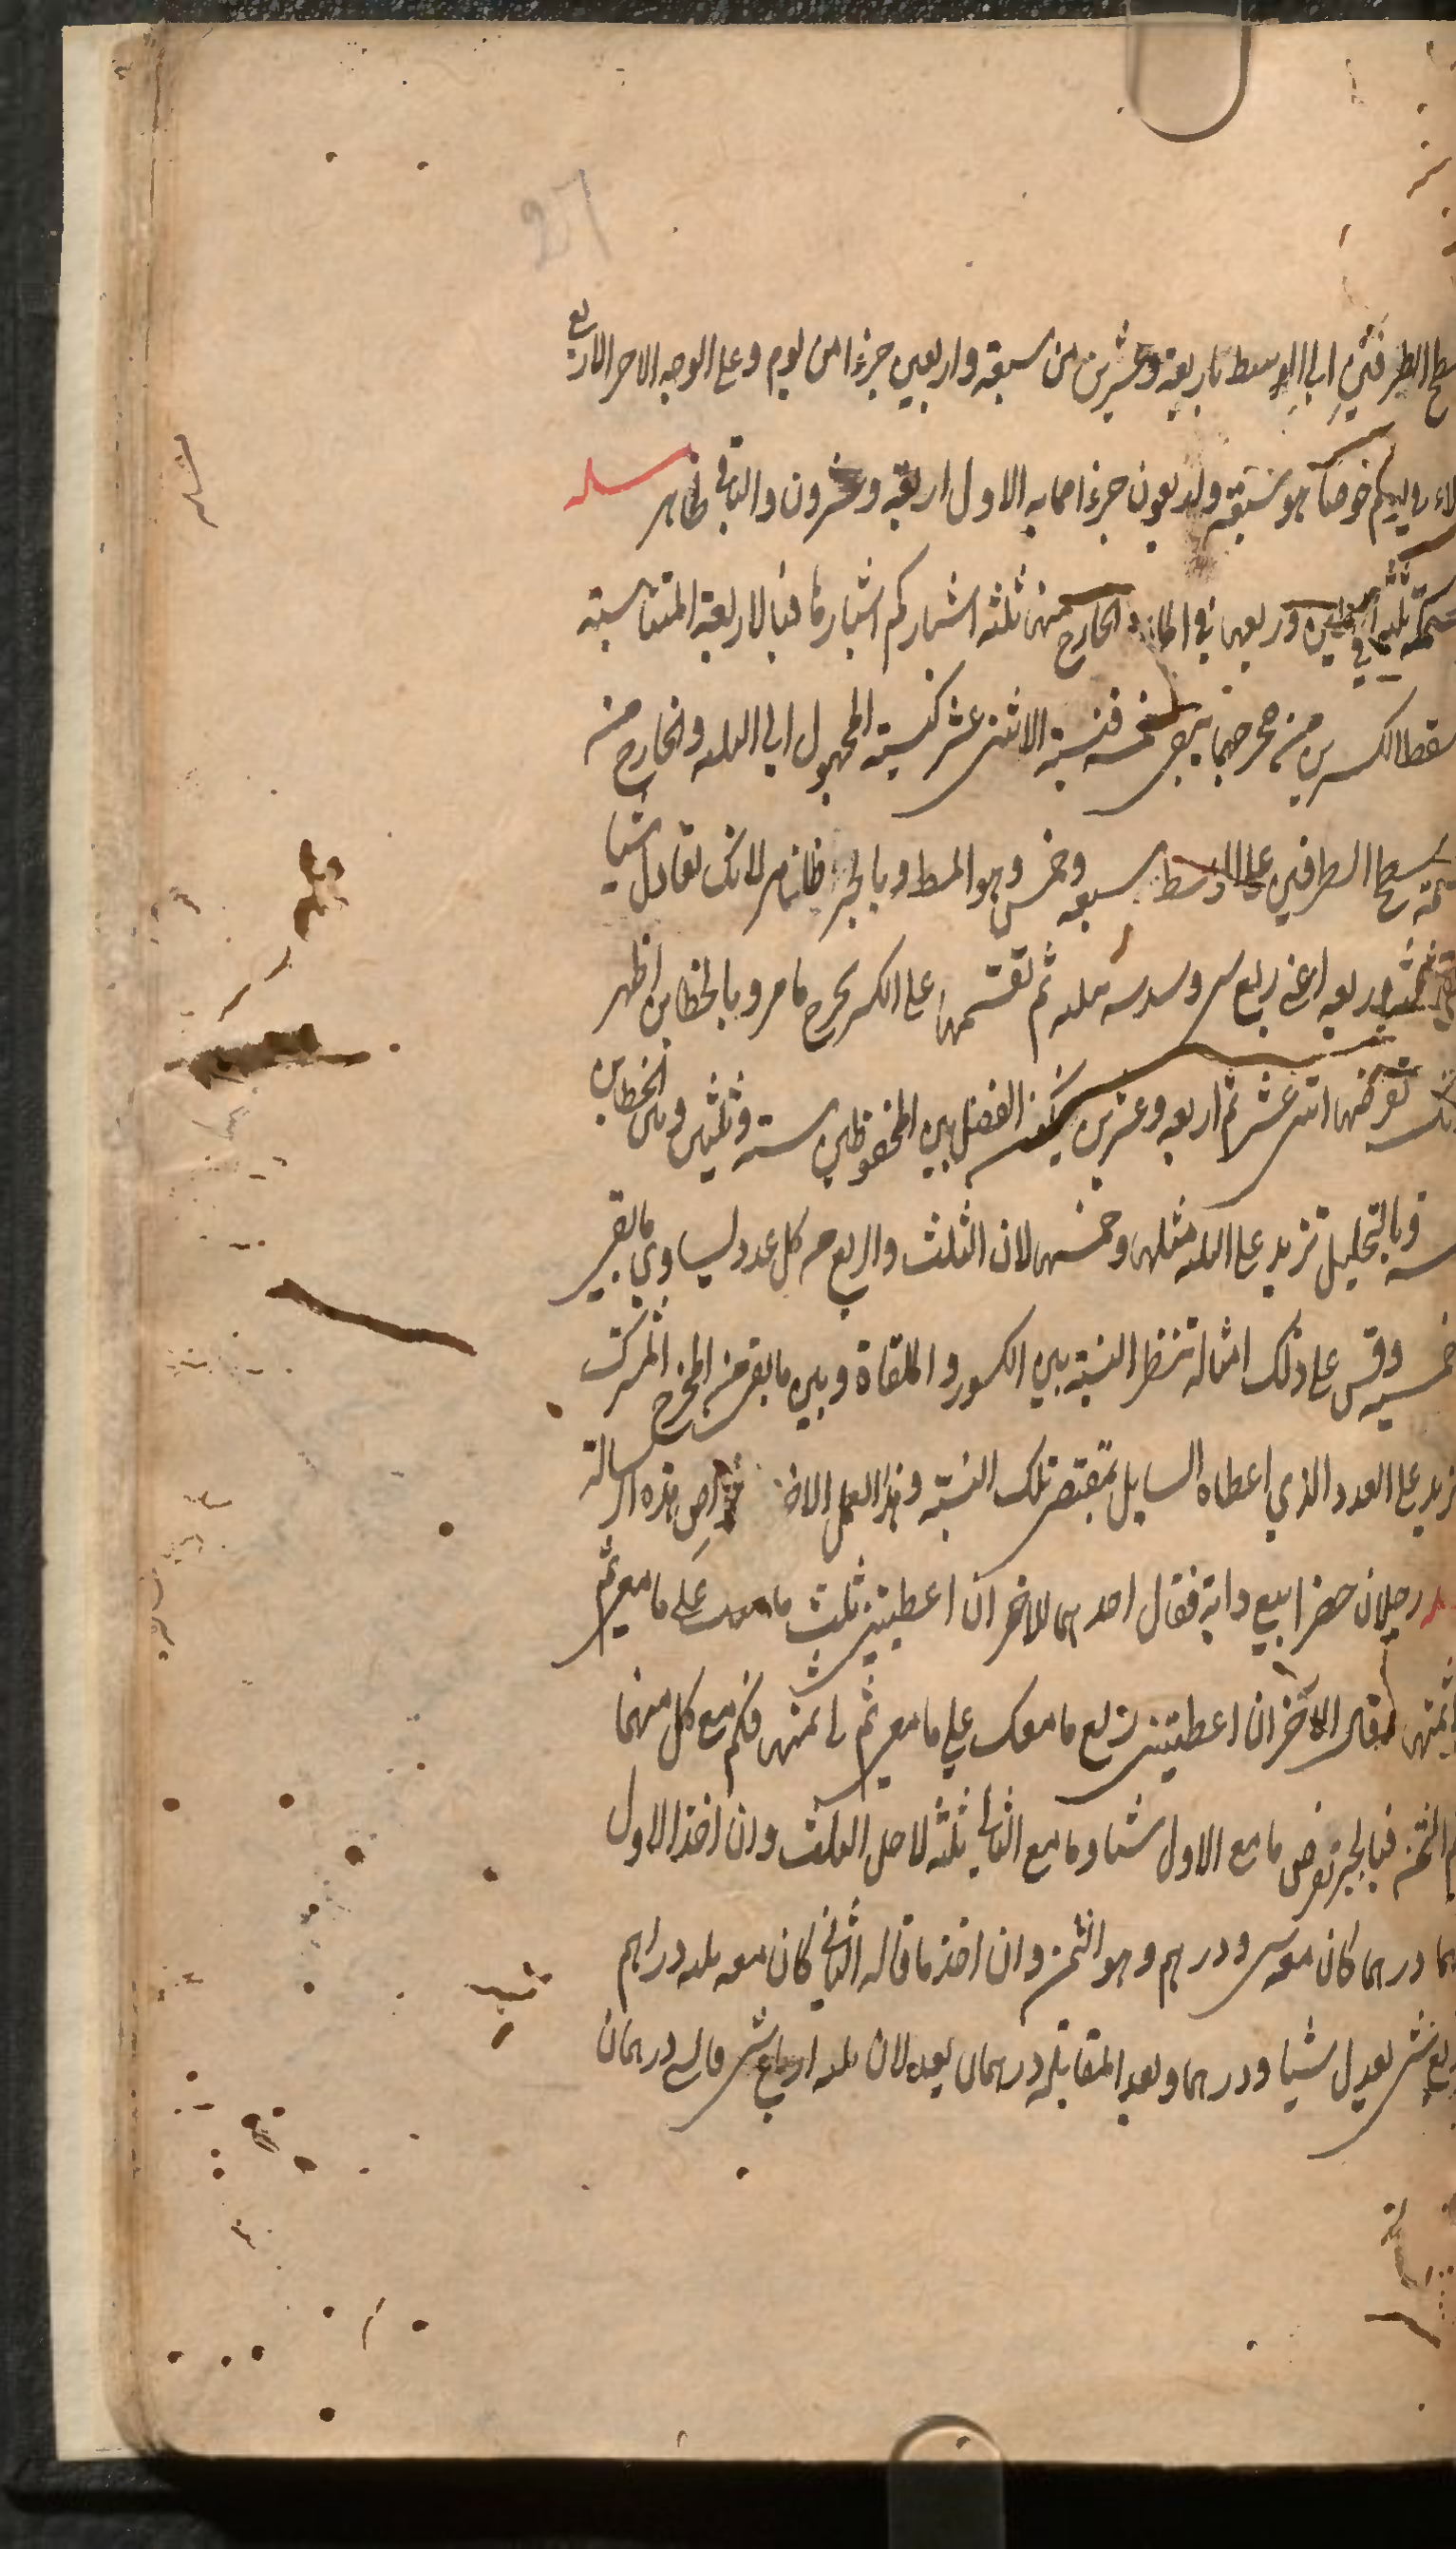 27
سطح الطرفين الى الوسط باربعة وعشرين من سبعة واربعين جزءا من يوم وعلى الوجه الاخر الاربع
هو سبعة واربعون جزءا مما به الاول اربعة وعشرون والباقي ظاهر مسئله
سمكة ثلثها في الطين وربعها في الماء والخارج منها ثلثة اشبار كم اشبارها فبالاربعة المتناسبة
اسقط الكسرين من مخرجهما يبقى خمسة فنسبة الاثني عشر كنسبة المجهول الى الثلثه والخارج من
قسمة سطح الطرفين على الوسط سبعه وخمس وهو المط وبالجبر ظاهر لانك تعادل شيئا
وربعه اعنى ربع شي وسدسه بثلثه ثم تقسمها على الكسر يخرج ما مر وبالخطاين اظهر
لانك تفرضها اثنى عشر ثم اربعه وعشرين فيكون الفضل بين المحفوظين ستة وثلثين وبين الخطاين
خمسه وبالتحليل تزيد على الثلثه مثلها وخمسها لان الثلث والربع من كل عدد يساوي ما بقى
وخمسيه وقس على ذلك امثاله تنظر النسبة بين الكسور الملقاة وبين ما بقى من المخرج المشترك
وتزيد على العدد الذي اعطاه السايل بمقتضى تلك النسبة وهذا العمل الاخير من خواص هذه الرسالة
رجلان حضرا بيع دابة فقال احدهما للاخر ان اعطيتني ثلث ما معك على ما معي تم
لي ثمنها فقال الآخر ان اعطيتني ربع ما معك على ما معي تم لي ثمنها فكم مع كل منهما
وكم الثمن فبالجبر تفرض ما مع الاول شيئا وما مع الثاني ثلثه لاجل الثلث وان اخذ الاول
منها درهما كان معه شي ودرهم وهو الثمن وان اخذ ما قاله الثاني كان معه ثلثه دراهم
وربع شي يعدل شيئا ودرهما وبعد المقابلة درهمان يعدلان ثلثه ارباع شي فالشي درهمان